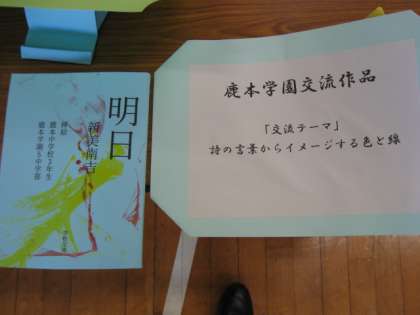 明日
新美南吉
挿絵
鹿本中学校2年生
鹿本学園S中学部
鹿本学園交流作品
「交流テーマ」
詩の言葉からイメージする色と線